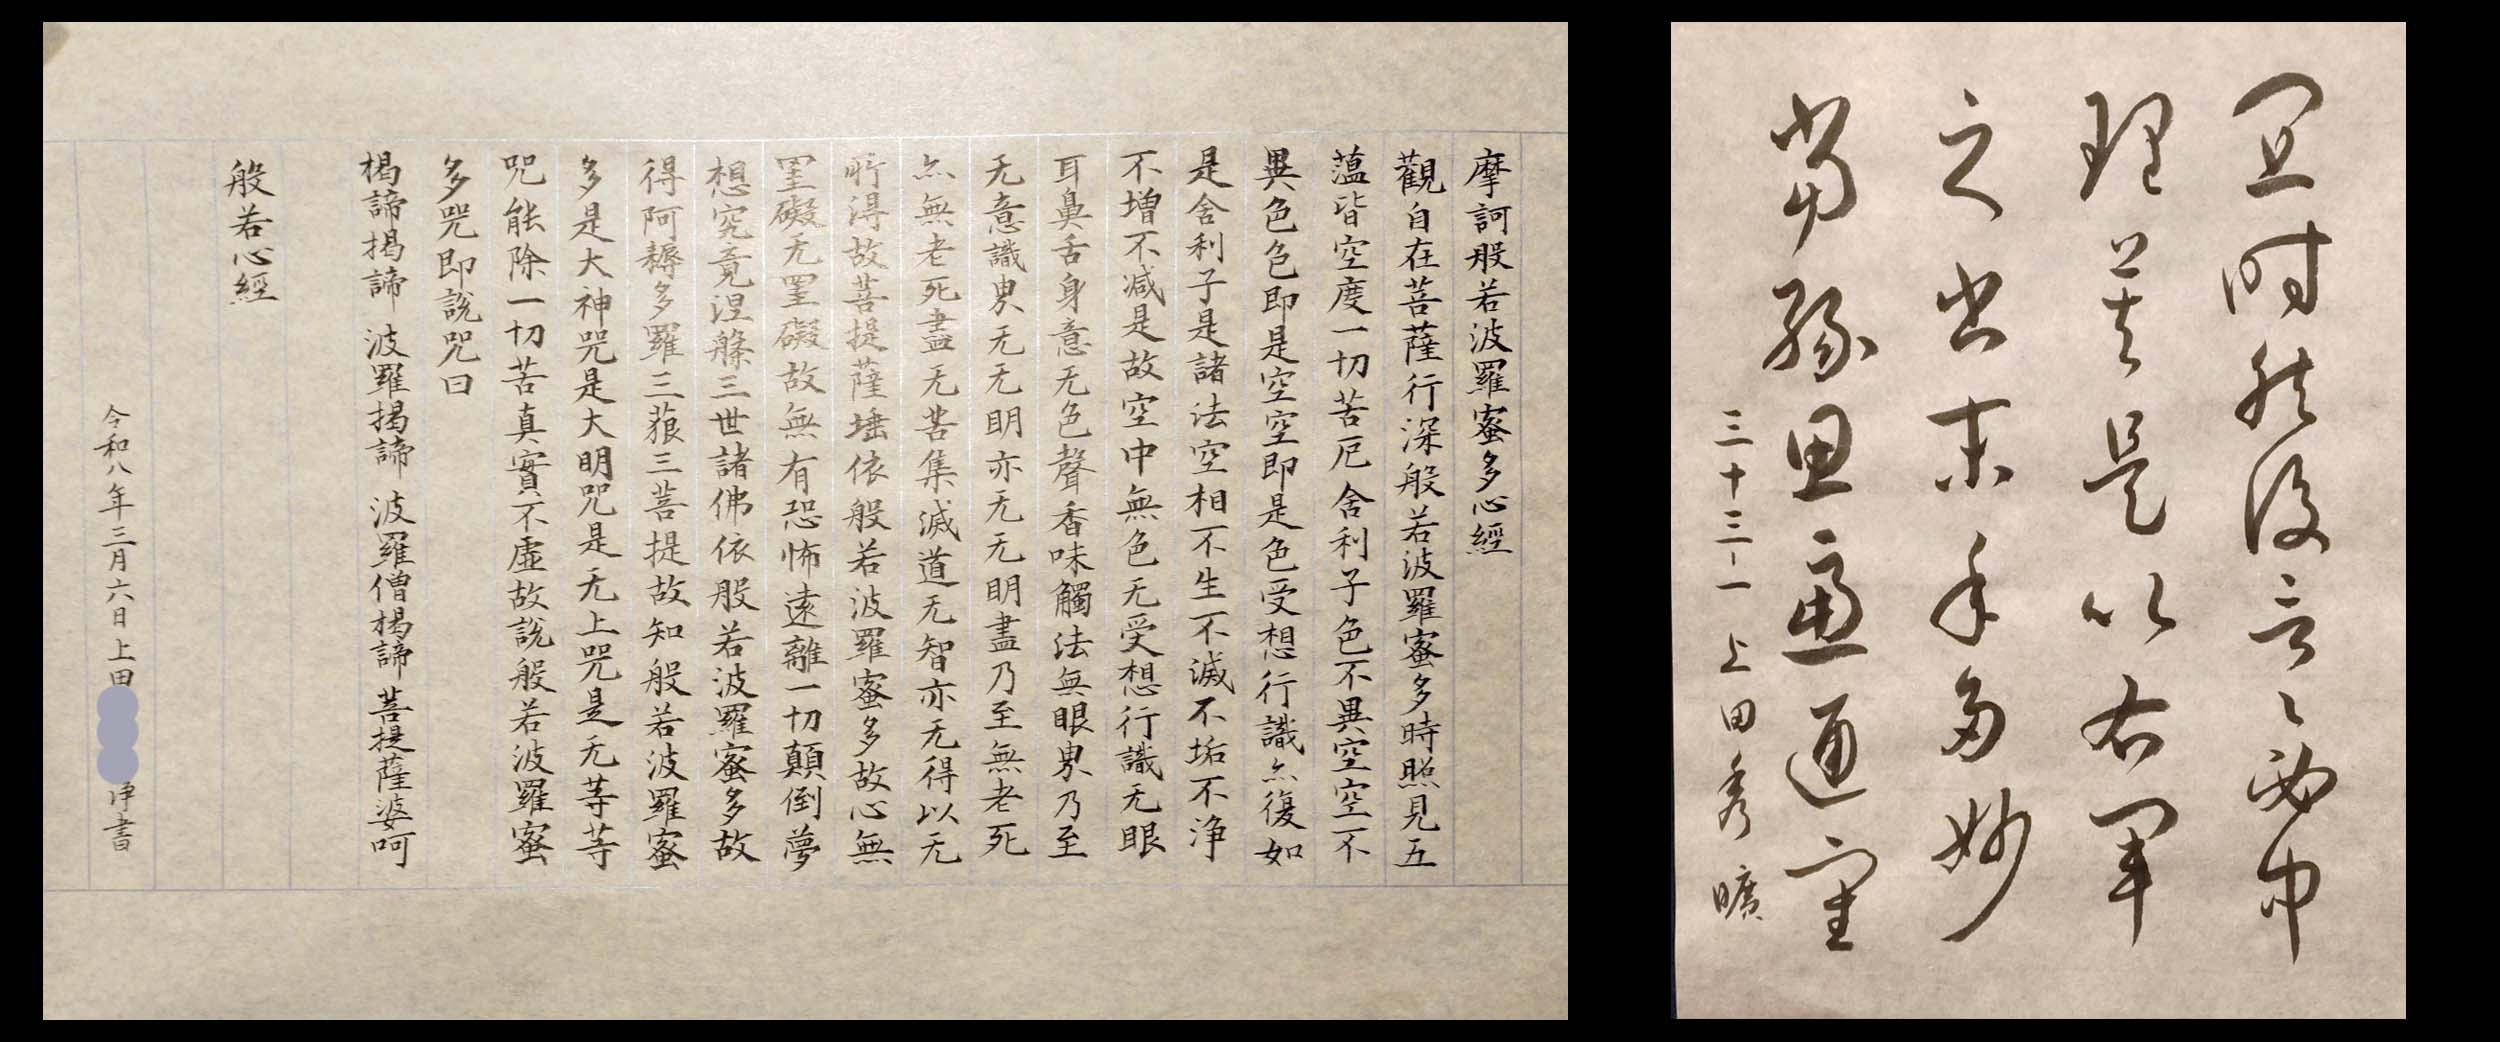 摩訶般若波羅蜜多心經
觀自在菩薩行深般若波羅蜜多時照見五
蕰皆空度一切苦厄舍利子色不異空空不
異色色即是空空即是色受想行識亦復如
是舍利子是諸法空相不生不滅不垢不浄
不增不減是故空中無色无受想行識无眼
耳鼻舌身意无色聲香味觸法無眼界乃至
无意識界无无明亦无无明盡乃至無老死
亦無老死盡无苦集滅道无智亦无得以无
所得故菩提薩埵依般若波羅蜜多故心無
罣礙无罣礙故無有恐怖遠離一切顛倒夢
想究竟涅槃三世諸佛依般若波羅蜜多故
得阿耨多羅三藐三菩提故知般若波羅蜜
多是大神咒是大明咒是无上咒是无等等
咒能除一切苦真實不虛故說般若波羅蜜
多咒即說咒曰
揭諦揭諦 波羅揭諦 波羅僧揭諦 菩提薩婆呵
般若心經
令和八年三月六日上田 浄書
宜時然後言〻必中
理矣是以右軍
之書末年多妙
當緣思慮通審
三十三-一 上田秀曠